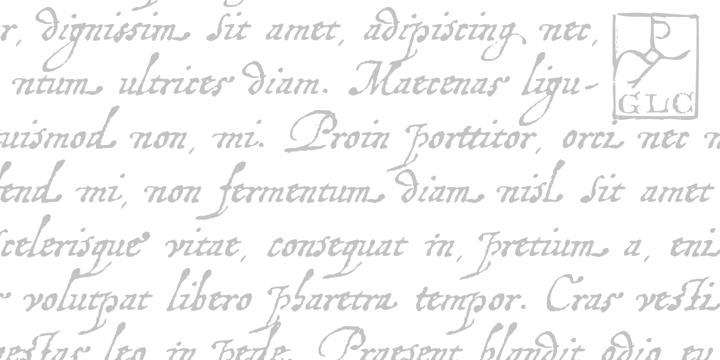 r, dignissim sit amet, adipiscing nec,
ntum ultrices diam. Maecenas ligu-
uismod non, mi. Proin porttitor, orci nec n
end mi, non fermentum diam nisl sit amet
celerisque vitae, consequat in, pretium a, eni
volutpat libero pharetra tempor. Cras vesti
estas leo in pede. Praesent blandit odio eu
GLC